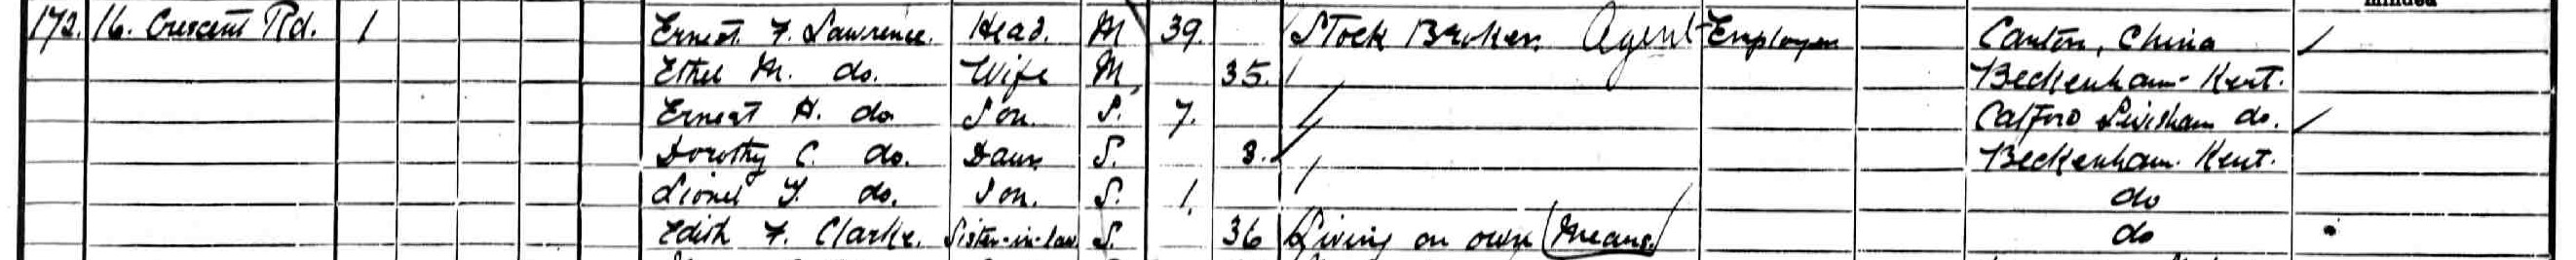 minded
172. 16. Crescent Rd. 1 Ernest F. Lawrence. Head. M 39. Stock Broker. Agent Employer Canton, China
Ethel M. do. Wife M 35. Beckenham Kent.
Ernest H. do Son. S. 7. Catford Lewisham do.
Dorothy C. do. Daur. S. 3. Beckenham. Kent.
Lionel do. Son. S. 1. do
Edith F. Clarke. Sister-in-law S. 36 Living on own Means. do